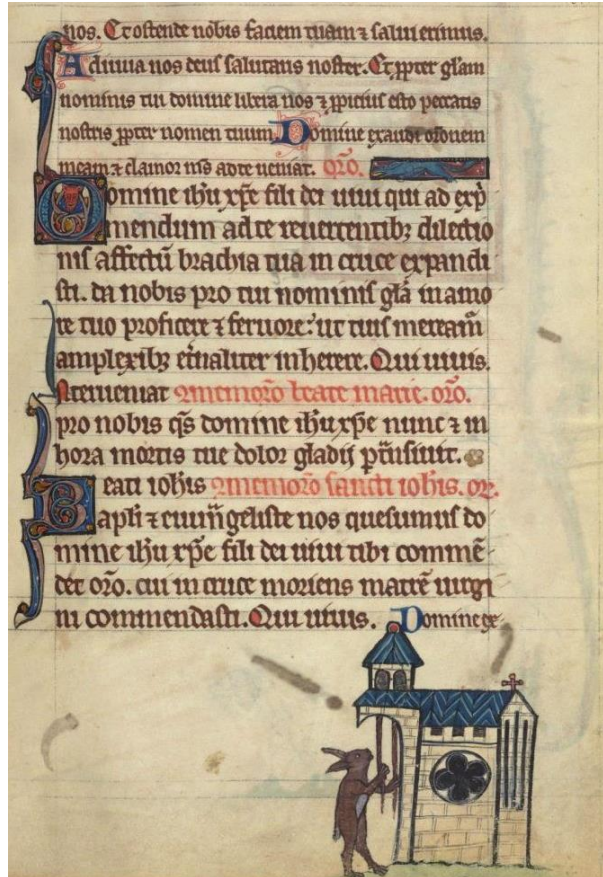 nos. Et ostende nobis faciem tuam ⁊ salui erimus.
Adiuua nos deus salutaris noster. Et ꝓpter gl̃am
nominis tui domine libera nos ⁊ ꝓpicius esto peccatis
nostris ꝓpter nomen tuum. Domine exaudi or̃onem
meam ⁊ clamor m̃s ad te ueniat. or̃o.
Domine ihũ xp̃e fili dei uiui qui ad exp̃
mendum ad te reuertentibꝫ dilectio
nis affectũ brachia tua in cruce expandi
sti. da nobis pro tui nominis gl̃a in amo
re tuo proficere ⁊ feruore: ut tuis meream̃
amplexibꝫ et̃naliter inherere. Qui uiuis.
Interueniat memor̃o beate marie. or̃o.
pro nobis q̃s domine ihũ xp̃e nunc ⁊ in
hora mortis tue dolor gladij pt̃nsiuit.
Beati ioh̃is memor̃o sancti ioh̃is. or̃.
apl̃i ⁊ euuãgeliste nos quesumus do
mine ihũ xp̃e fili dei uiui tibi commẽ
det or̃o. cui in cruce moriens matrẽ uirgi
ni commendasti. Qui uiuis. Domine ex